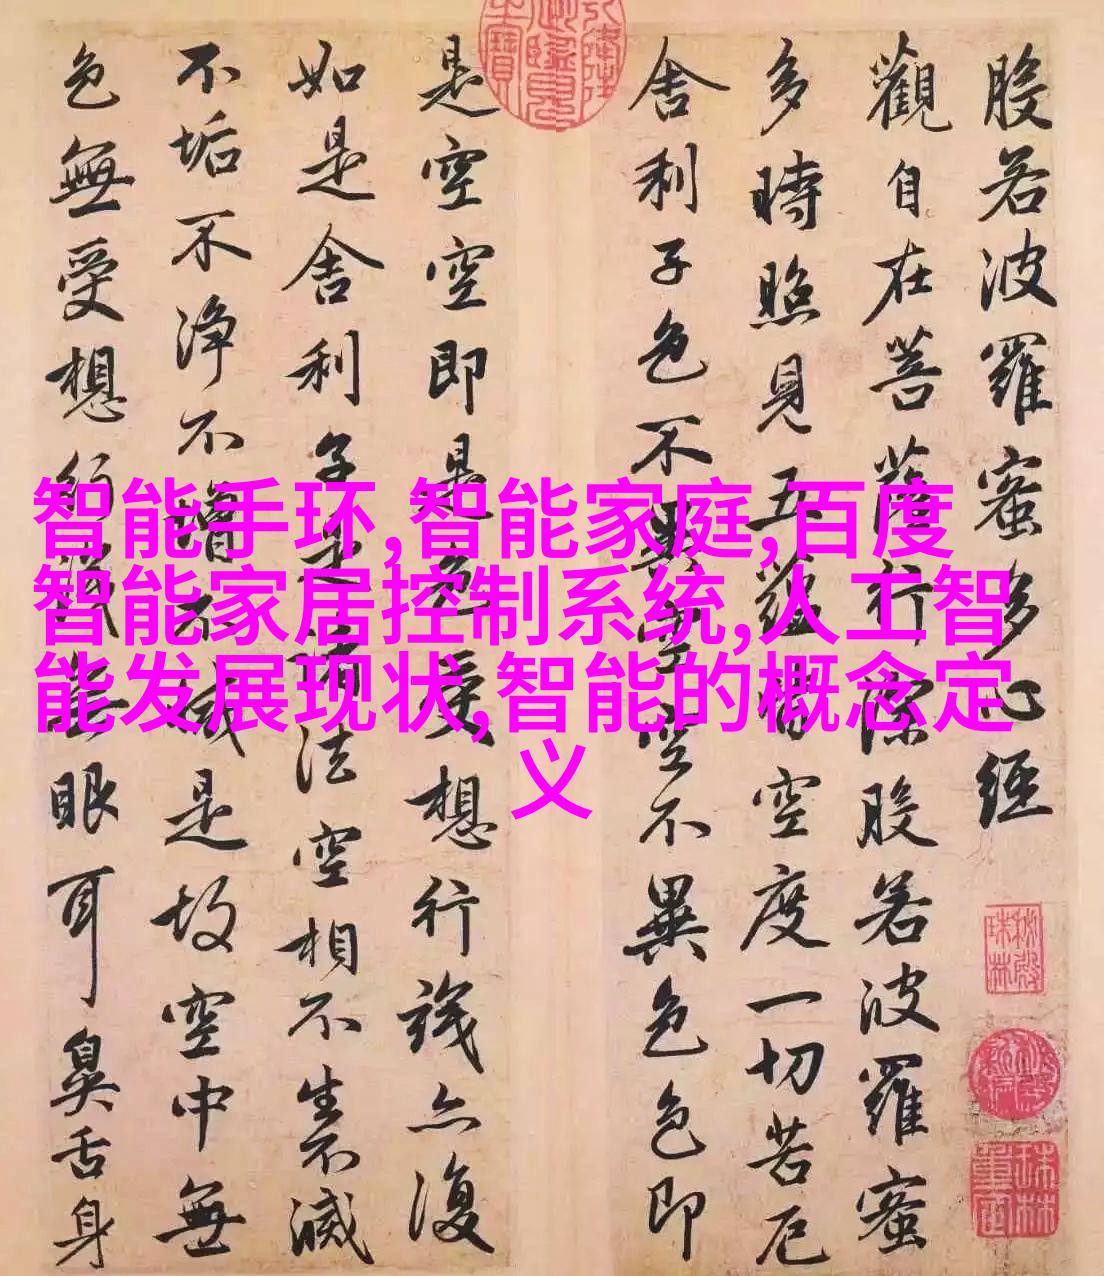 般若波羅蜜多心經
觀自在菩薩行深般若波羅蜜
多時照見五蘊皆空度一切苦厄
舍利子色不異空空不異色色即
是空空即是色受想行識亦復
如是舍利子是諸法空相不生不滅
不垢不净不增不減是故空中無
色無受想行識無眼耳鼻舌身
智能手环,智能家庭,百度
智能家居控制系统,人工智
能发展现状,智能的概念定
义